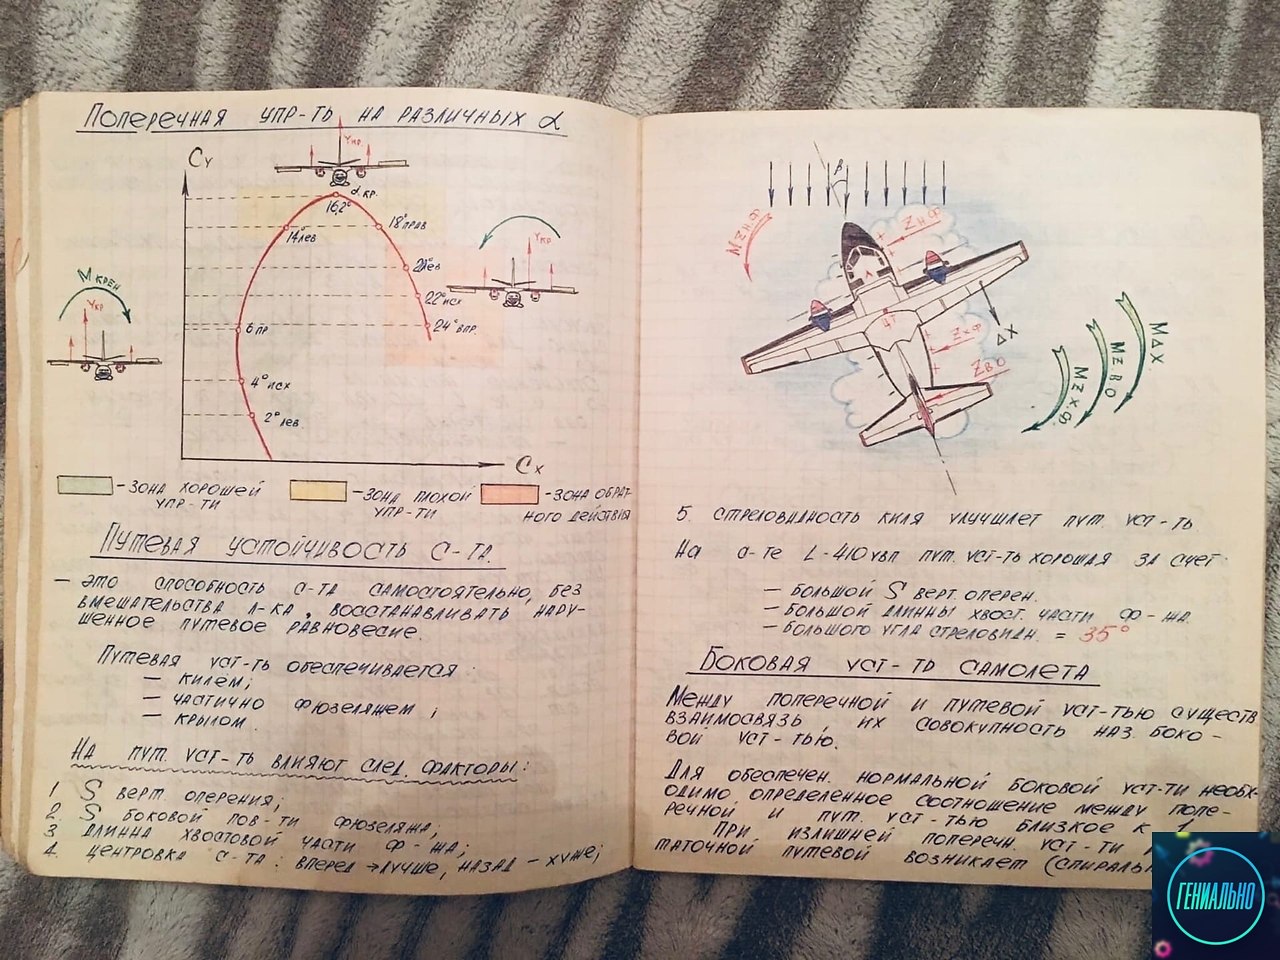 Поперечная упр-ть на различных α
Cy
Yкр.
α кр.
16,2°
14° лев
18° прав
Yкр
М крен
Yкр
6 пр
22° исх
24° впр.
4° исх
2° лев
Cx
- зона хорошей
упр-ти
- зона плохой
упр-ти
- зона обрат-
ного действия
Путевая устойчивость с-та.
- это способность с-та самостоятельно, без
вмешательства л-ка, восстанавливать нару-
шенное путевое равновесие.
Путевая уст-ть обеспечивается:
- килем;
- частично фюзеляжем;
- крылом.
На пут. уст-ть влияют след. факторы:
1 S верт. оперения;
2. S боковой пов-ти фюзеляжа;
3 длинна хвостовой части ф-жа;
4. центровка с-та: вперед → лучше, назад - хуже;
β
Mz н.ф
Zн.ф
ΔX
Zхф
Zво
MΔX.
Mz в о
Mz х.ф.
5. стреловидность киля улучшлет пут. уст-ть
На с-те L-410 увп пут. уст-ть хорошая за счет:
- большой S верт. оперен.
- большой длинны хвост. части ф-жа.
- большого угла стреловидн. = 35°
Боковая уст-ть самолета
Между поперечной и путевой уст-тью существ
взаимосвязь, их совокупность наз. боко-
вой уст-тью.
Для обеспечен. нормальной боковой уст-ти необх-
одимо определенное соотношение между попе-
речной и пут. уст-тью близкое к 1
При излишней поперечн. уст-ти
таточной путевой возникает (спираль
ГЕНИАЛЬНО